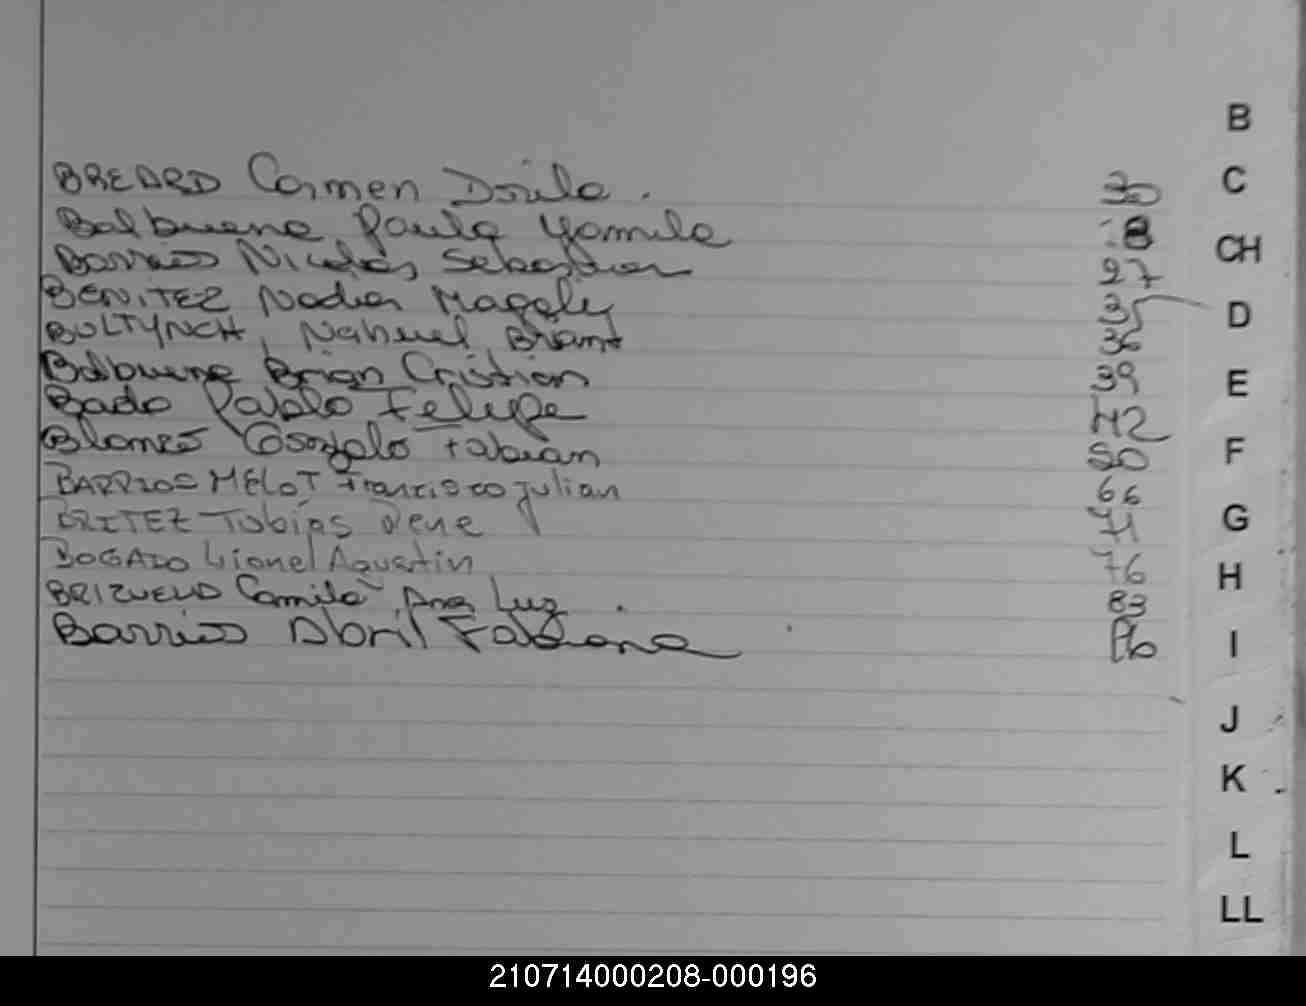 B
BREARD Carmen Dorila. 30
C
Balbuena Paula Yamila
CH
Barrios Nicolás Sebastian 27
BENITEZ Nadia Magaly 35
D
BULTYNCH, Nahuel Briant 36
Balbuena Brian Cristian 39
E
Bado Pablo Felipe 42
Blanco Gonzalo Fabian 50
F
BARRIOS MELOT Francisco Julian 66
G
BRITEZ Tobias Rene 71
BOGADO Lionel Agustin 76
H
BRIZUELA Camila Ana Luz. 83
Barrios Abril Fabiana 86
I
J
K
L
LL
210714000208-000196